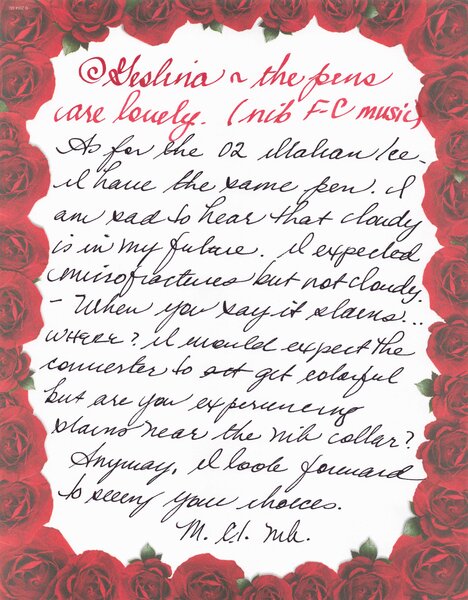 @Yeslina ~ the pens
are lovely. (nib F-C music)
As for the 02 Italian Ice-
I have the same pen. I
am sad to hear that cloudy
is in my future. I expected
microfractures but not cloudy.
- When you say it stains...
WHERE? I would expect the
converter to get colorful
but are you experiencing
stains near the nib collar?
Anyway, I look forward
to seeing your choices.
M.